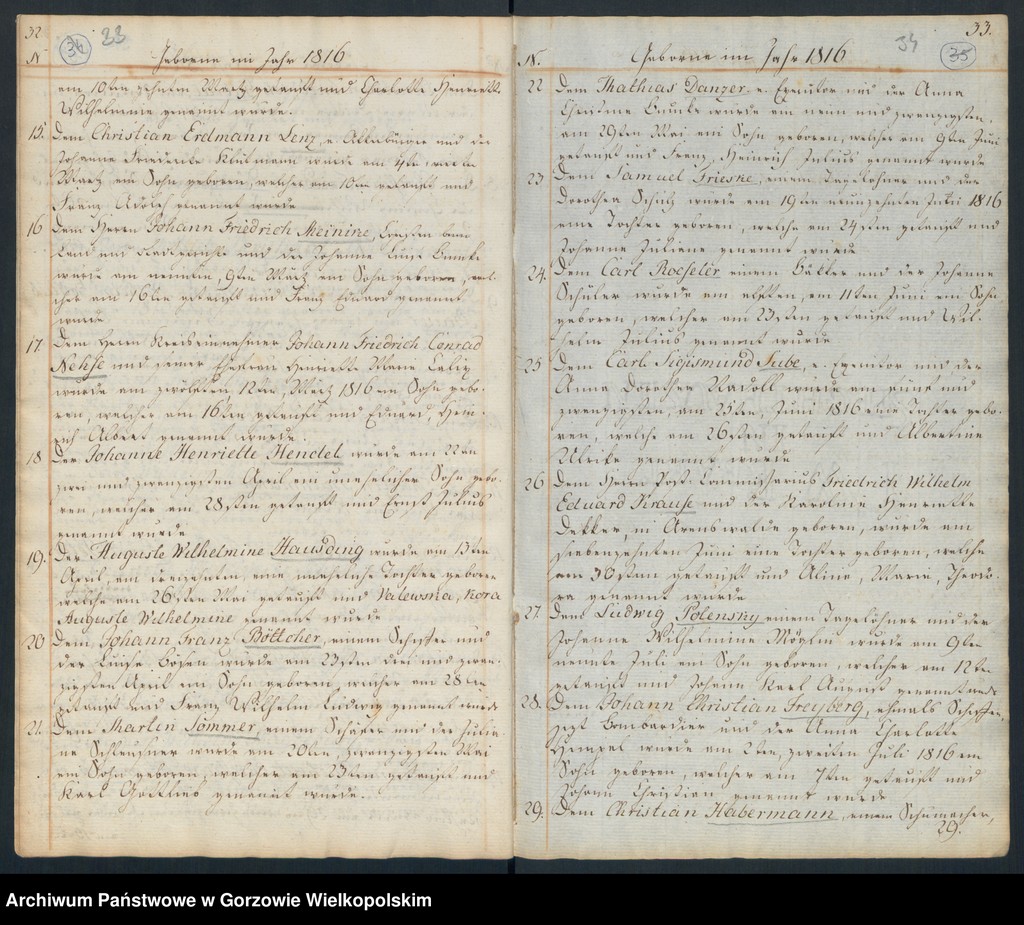 32
34 33
N Geborne im Jahr 1816
am 10ten zehnten Maertz getauft und Charlotte Henriette
Wilhelmine genannt wurde.
15. Dem Christian Erdmann Lenz, e. Altenbürger und der
Johanne Friederike wurde am 4ten
Maertz ein Sohn geboren, welcher am 10ten getauft und
Franz Adolf genannt wurde
16 Dem Herrn Johann Friedrich Meinine, beim
Land und Stadtgericht und der Johanne Luise
wurde am neunten, 9ten März ein Sohn geboren, wel-
cher am 16ten getauft und Franz Eduard genannt
wurde
17. Dem Herrn Kreiseinnehmer Johann Friedrich Conrad
Nehse und seiner Ehefrau Henriette Marie
wurde am zwölften, 12ten März 1816 ein Sohn gebo-
ren, welcher am 16ten getauft und Eduard, Hein-
rich Albert genannt wurde.
18 Der Johanne Henriette Hendel wurde am 22ten
zwei und zwanzigsten April ein unehelicher Sohn gebo-
ren, welcher am 28sten getauft und Ernst Julius
genannt wurde
19. Der Auguste Wilhelmine Hausding wurde am 13ten
April, am dreizehnten, eine uneheliche Tochter geboren
welche am 26sten Mai getauft und Valewska, Nora
Auguste Wilhelmine genannt wurde
20 Dem Johann Franz Böttcher, einem Schiffer und
der Luise Bösen wurde am 23sten drei und zwan-
zigsten April ein Sohn geboren, welcher am 28ten
getauft und Franz Wilhelm Ludwig genannt wurde
21. Dem Martin Sommer einem Schäfer und der Julia-
ne Schleusner wurde am 20ten, zwanzigsten Mai
ein Sohn geboren, welcher am 23ten getauft und
Karl Gottlieb genannt wurde.
33.
34 35
N. Geborne im Jahr 1816
22 Dem Mathias Danzer e. Exekutor und der Anna
Christine wurde am neun und zwanzigsten,
am 29ten Mai ein Sohn geboren, welcher am 9ten Juni
getauft und Franz, Heinrich Julius genannt wurde
23 Dem Samuel Grieske, einem Tagelöhner und der
Dorothea Schulz wurde am 19ten neunzehnten Juni 1816
eine Tochter geboren, welche am 24sten getauft und
Johanne Juliene genannt wurde
24. Dem Carl Roeseler einem und der Johanne
Schüler wurde am elften, am 11ten Juni ein Sohn
geboren, welcher am 23sten getauft und Wil-
helm Julius genannt wurde
25 Dem Carl Sigismund Sube, e. Exekutor und der
Anna Dorothea Radoll wurde am fünf und
zwanzigsten, am 25ten, Juni 1816 eine Tochter gebo-
ren, welche am 26sten getauft und Albertine
Ulrike genannt wurde.
26 Dem Herrn Post-Commissarius Friedrich Wilhelm
Eduard Krause und der Karoline Henriette
Dekker, in Arenswalde geboren, wurde am
siebenzehnten Juni eine Tochter geboren, welche
am 30sten getauft und Aline, Marie, Theodo-
ra genannt wurde
27. Dem Ludwig Polensky einem Tagelöhner und der
Johanne Wilhelmine Möglin wurde am 9ten
neunte Juli ein Sohn geboren, welcher am 12ten
getauft und Johann Karl August genannt wurde
28. Dem Johann Christian Freyberg, ehmals Schiffer,
jezt Bombardier und der Anna Charlotte
Hempel wurde am 2ten, zweiten Juli 1816 ein
Sohn geboren, welcher am 7ten getauft und
Johann Christian genannt wurde
29. Dem Christian Habermann, einem Schumacher,
29.
Archiwum Państwowe w Gorzowie Wielkopolskim